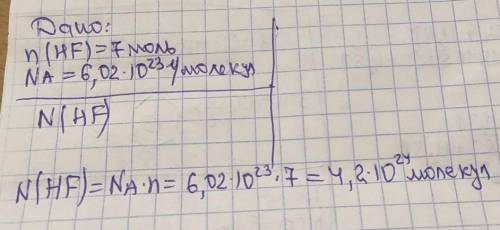 Дано:
n(HF)=7моль
NA=6,02·10²³ молекул
N(HF)
N(HF)=NA·n=6,02·10²³·7=4,2·10²⁴молекул